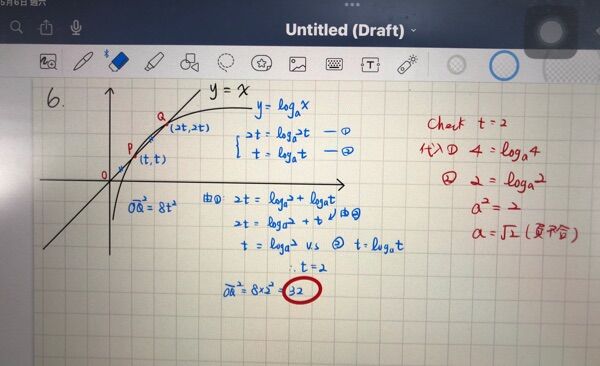 5月6日 週六
Untitled (Draft)
6.
y = x
Q
(2t, 2t)
P
(t, t)
O
y = logₐx
2t = logₐ2t —①
t = logₐt —②
OQ² = 8t²
由①: 2t = logₐ2 + logₐt
2t = logₐ2 + t 由②
t = logₐ2 v.s ② t = logₐt
∴ t = 2
OQ² = 8×2² = 32
Check t = 2
代入① 4 = logₐ4
② 2 = logₐ2
a² = 2
a = √2 (負不合)